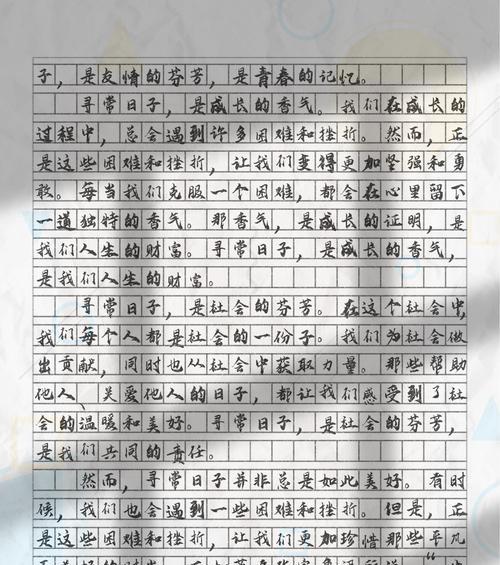 子，是友情的芬芳，是青春的记忆。
寻常日子，是成长的香气。我们在成长的
过程中，总会遇到许多困难和挫折。然而，正
是这些困难和挫折，让我们变得更加坚强和勇
敢。每当我们克服一个困难，都会在心里留下
一道独特的香气。那香气，是成长的证明，是
我们人生的财富。寻常日子，是成长的香气，
是我们人生的财富。
寻常日子，是社会的芬芳。在这个社会中，
我们每个人都是社会的一份子。我们为社会做
出贡献，同时也从社会中获取力量。那些帮助
他人、关爱他人的日子，都让我们感受到了社
会的温暖和美好。寻常日子，是社会的芬芳，
是我们共同的责任。
然而，寻常日子并非总是如此美好。有时
候，我们也会遇到一些困难和挫折。但是，正
是这些困难和挫折，让我们更加珍惜那些平凡